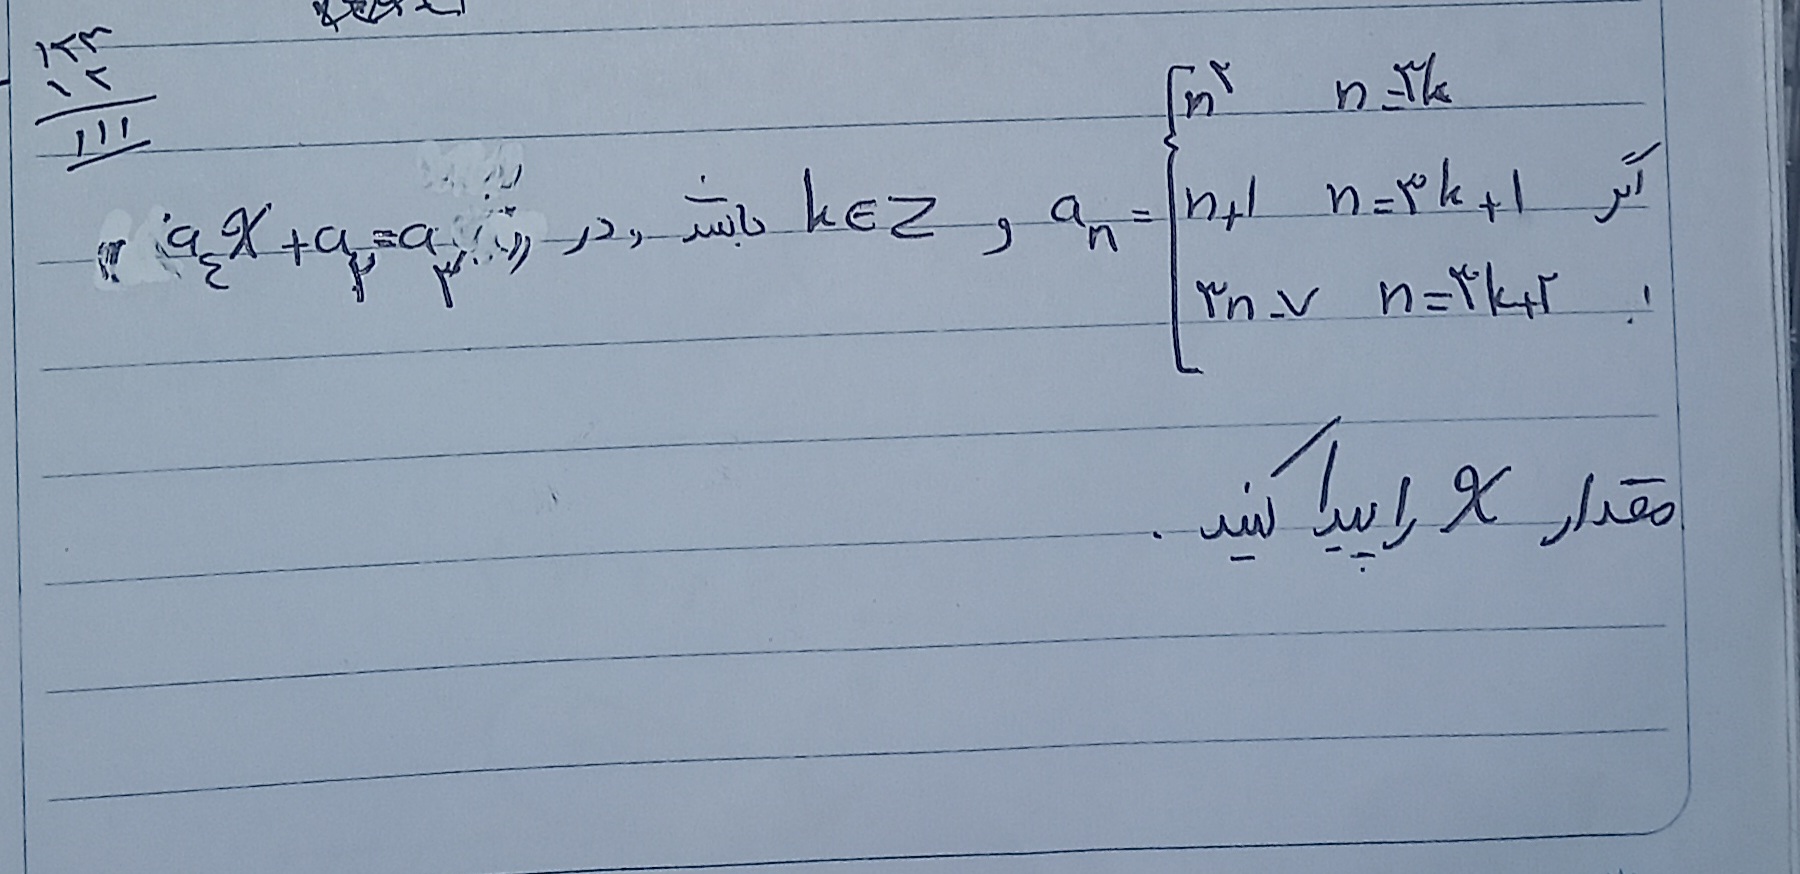 ۱۲۳
۱۲
۱۱۱
اگر a_n = { n^۲ n=۳k
n+۱ n=۳k+۱
۳n-۷ n=۳k+۲
و k∈Z باشد، در a_٤x+a_۲=a_۳
مقدار x را پیدا کنید.